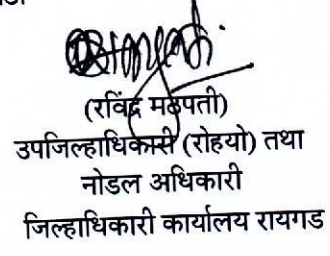 (रविंद्र मठपती)
उपजिल्हाधिकारी (रोहयो) तथा
नोडल अधिकारी
जिल्हाधिकारी कार्यालय रायगड